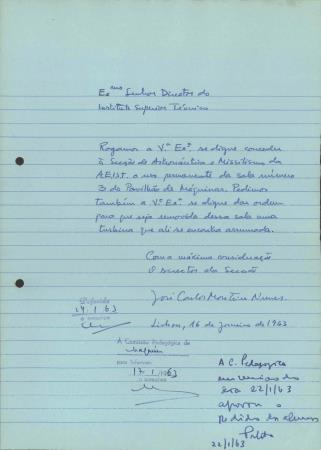 Exmo Senhor Director do
Instituto Superior Técnico
Rogamos a V.ª Ex.ª se digne conceder
à Secção de Astronáutica e Missilística da
A.E.I.S.T. o uso permanente da sala número
3 do Pavilhão de Máquinas. Pedimos
também a V.ª Ex.ª se digne dar ordem
para que seja removida dessa sala uma
turbina que ali se encontra arrumada.
Com a máxima consideração
O Director da Secção
José Carlos Monteiro Nunes.
Lisboa, 16 de janeiro de 1963
Deferido
24.1.63
O DIRECTOR
A Comissão Pedagógica de
para informar
17.1.1963
O DIRECTOR
A C. Pedagógica
em reunião do
dia 22/1/63
aprovou o
pedido dos alunos
22/1/63